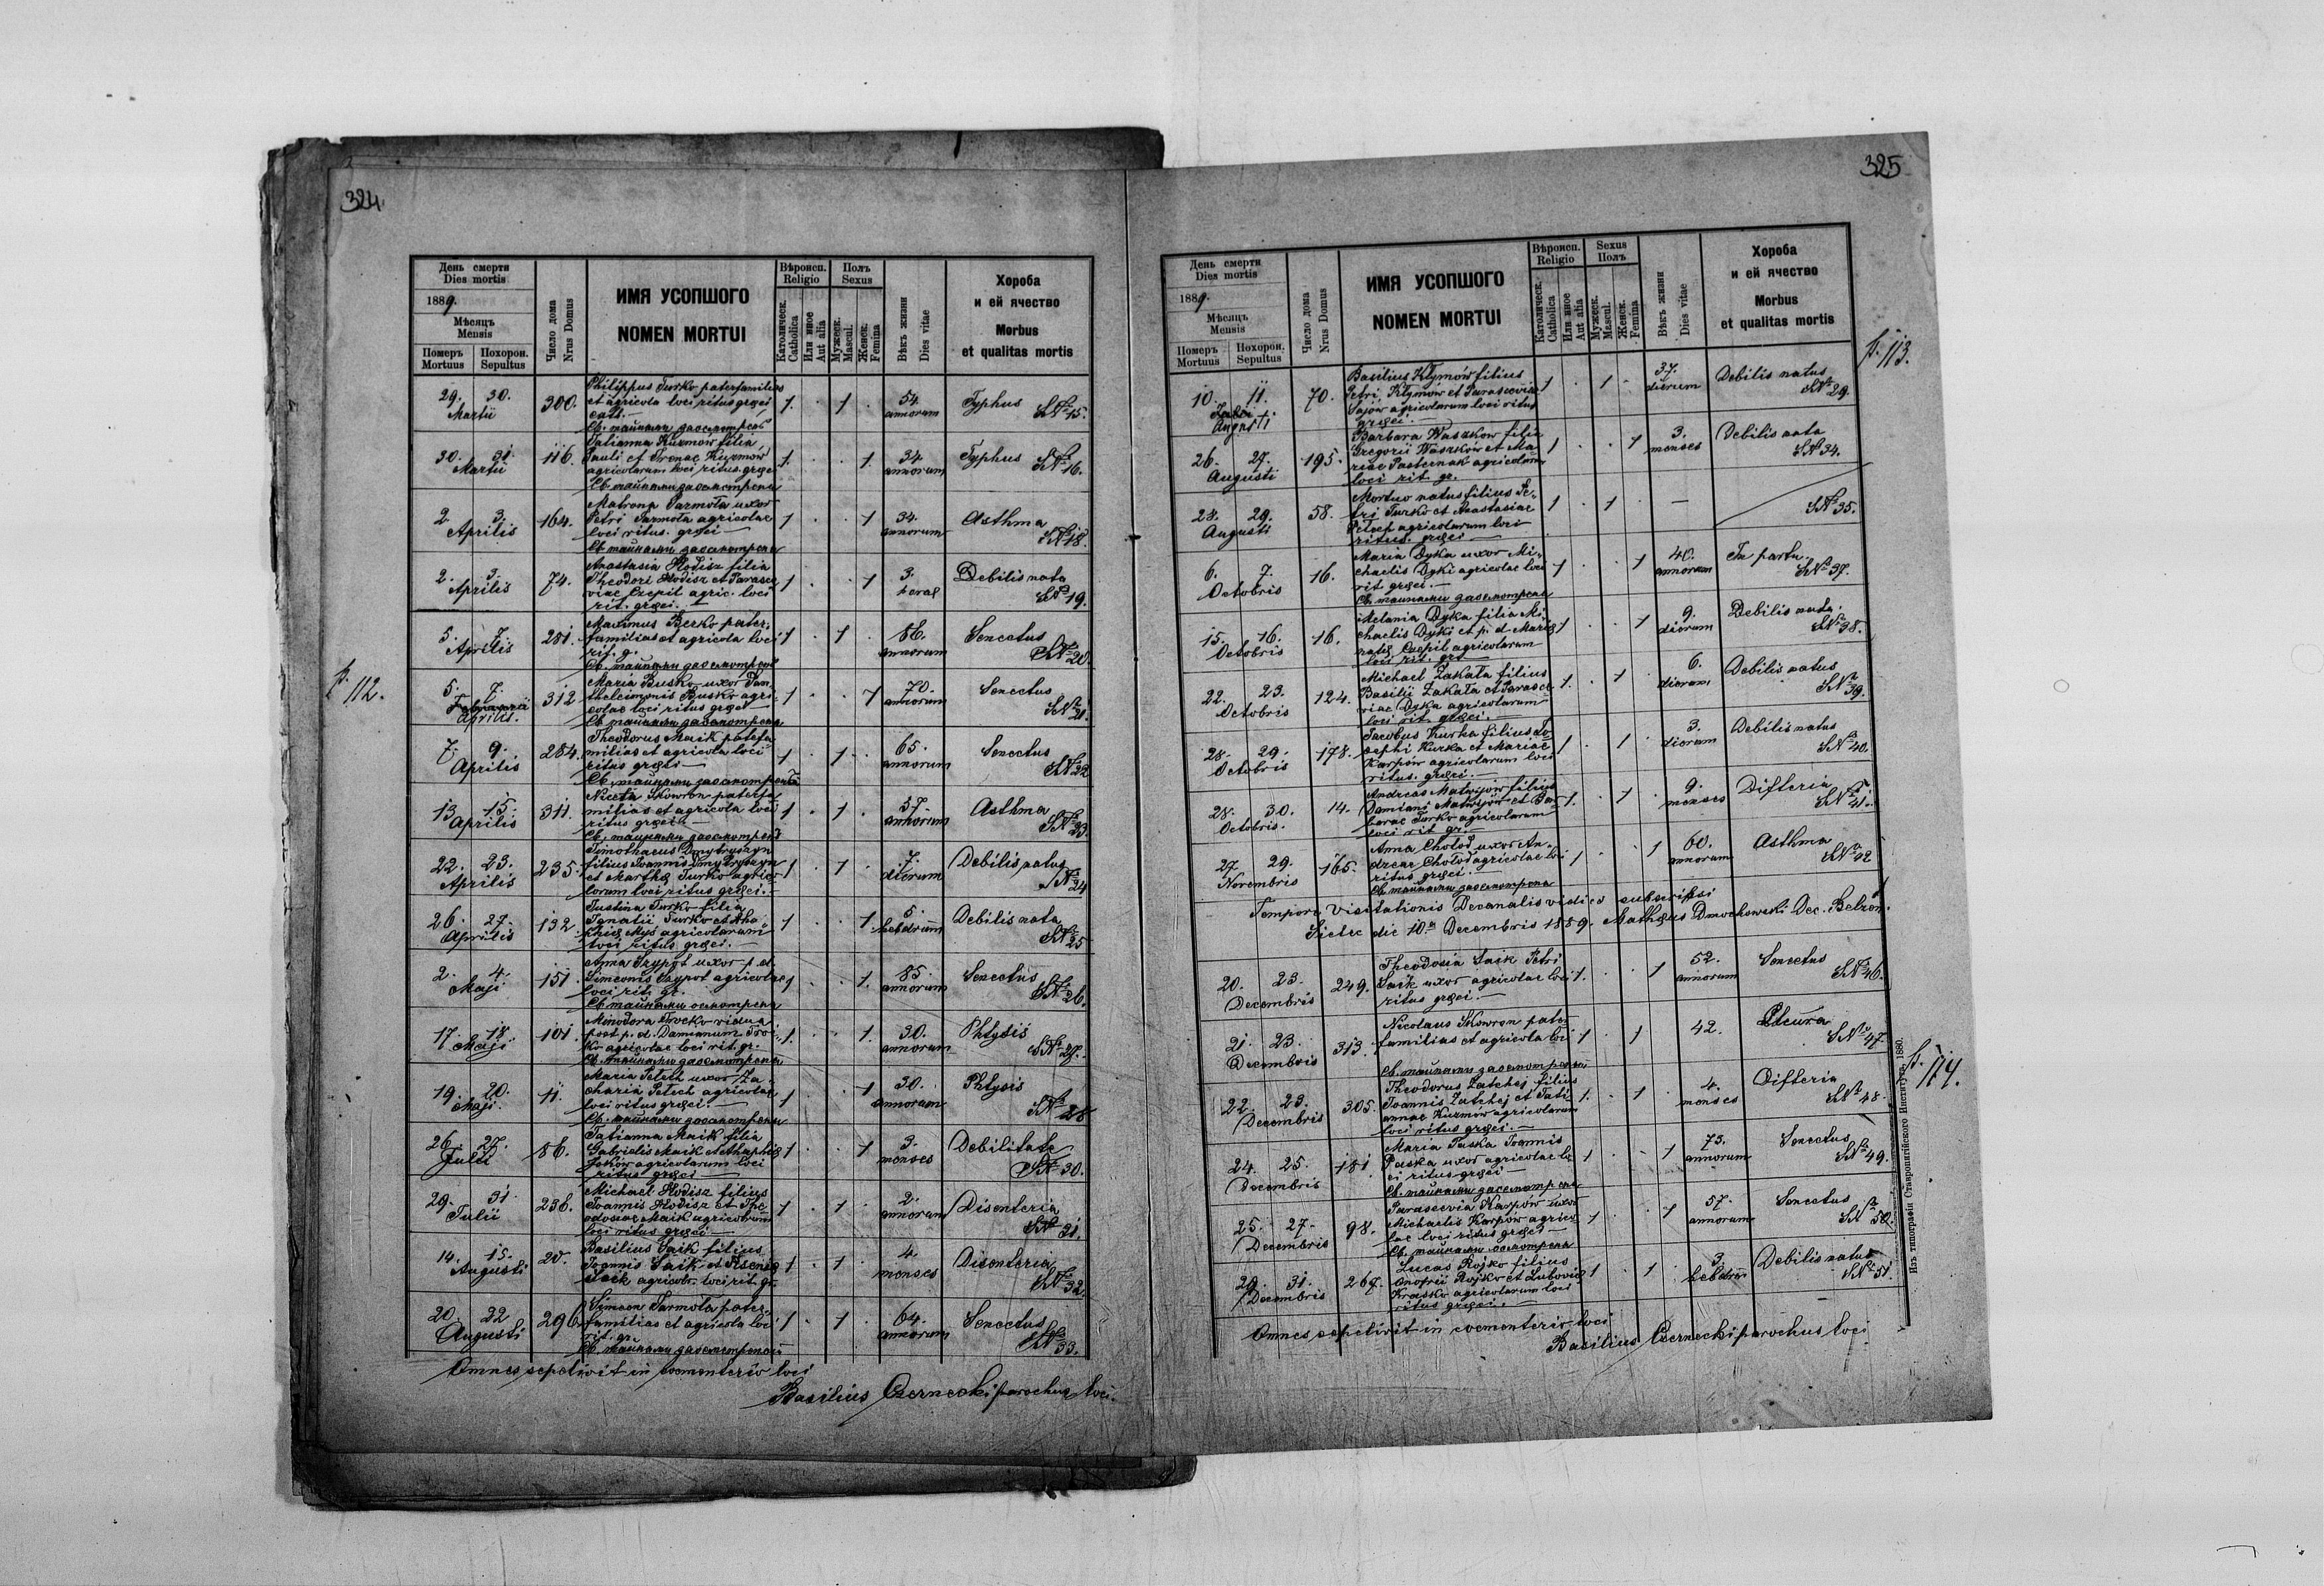 324
День смерти
Dies mortis
1889.
Мѣсяцъ
Mensis
Померъ Mortuus
Похорон. Sepultus
Число дома
Nrus Domus
ИМЯ УСОПШОГО
NOMEN MORTUI
Вѣроисп.
Religio
Католическ.
Catholica
Или иное
Aut alia
Полъ
Sexus
Мужеск.
Mascul.
Женск.
Femina
Вѣкъ жизни
Dies vitae
Хороба
и ей ячество
Morbus
et qualitas mortis
29. 30. Martii 300. Philippus Turko paterfamilias
et agricola loci ritus graeci
cath. 1. 1 54. annorum Typhus SN 15.
30. 31. Martii 116. Tatianna Kuzmow filia
Pauli et Irenae Kuzmow
agricolarum loci ritus graec 1. 1. 34. annorum Typhus SN 16.
2. 3. Aprilis 164. Matrona Parmota uxor
Petri Parmota agricolae
loci ritus. graeci 1 1 34. annorum Asthma SN 18.
2. 3. Aprilis 74. Anastasia Hodisz filia
Theodori Hodisz et Parasce
viae Czepil agric. loci
rit. graeci. 1 1 3. horas Debilis nata SN 19.
5. 7. Aprilis 281. Maximus Berko pater-
familias et agricola loci
rit. g. 1 1 86. annorum Senectus SN 20.
p. 112.
5. 7. Aprilis. 312 Maria Busko uxor Pan
theleimonis Busko agri-
colae loci ritus graeci 1 1 70. annorum Senectus SN 21.
7. 9. Aprilis 284. Theodorus Maik paterfa
milias et agricola loci
ritus graeci 1 1 65. annorum Senectus SN 22
13 15. Aprilis 311. Niceta Skowron paterfa
milias et agricola loci
ritus graeci 1 1 57. annorum Asthma SN 23.
22. 23. Aprilis 235. Timothaeus Dmytryszyn
filius Joannis Dmytryszyn
et Marthae Turko agrico
larum loci ritus graeci. 1 1 7. dierum Debilis natus SN 24
26. 27. Aprilis 132. Justina Turko filia
Ignatii Turko et
Mys agricolarum
loci ritus graeci. 1 1 5. hebdrum Debilis nata SN 25
2. 4. Maji 151. Anna uxor p. d.
Simeonis agricolae
loci rit. gr. 1 1. 85. annorum Senectus SN 26.
17. 18. Maji 101. Minodora Trocko vidua
post p. d. Damianum Troc
ko agricolae loci rit. gr. 1. 1. 30. annorum Phtysis SN 27.
19. 20. Maji. 11. Maria Petech uxor Za
charia Petech agricolae
loci ritus graeci. 1 1 30. annorum Phtysis SN 28
26. 27. Julii 86. Tatianna Maik filia
Gabrielis Maik et
agricolarum loci
ritus graeci 1 1 3. menses Debilitate SN 30.
29. 31. Julii 236. Michael Hodisz filius
Joannis Hodisz et The
odosiae Maik agricolarum
loci ritus graeci 1 1 2. annorum Disenteria SN 31.
14. 15. Augusti 20. Basilius Saik filius
Joannis Saik et
Saik agricolr. loci rit. gr. 1 1 4. menses Disenteria SN 32.
20. 22 Augusti 296. Simeon Parmota pater-
familias et agricola loci
rit. gr. 1 1 64. annorum Senectus SN 33.
Omnes sepelivit in coementerio loci
Basilius Czernecki parochus loci.
325
День смерти
Dies mortis
1889.
Мѣсяцъ
Mensis
Померъ Mortuus
Похорон. Sepultus
Число дома
Nrus Domus
ИМЯ УСОПШОГО
NOMEN MORTUI
Вѣроисп.
Religio
Католическ.
Catholica
Или иное
Aut alia
Sexus
Полъ
Мужеск.
Mascul.
Женск.
Femina
Вѣкъ жизни
Dies vitae
Хороба
и ей ячество
Morbus
et qualitas mortis
p. 113.
10. 11. Augusti 70. Basilius Klymów filius
Petri Klymów et Parasceviae
Sajów agricolarum loci ritus
graeci. 1 1 37. dierum Debilis natus SN 29.
26. 27. Augusti 195. Barbara Waskow filia
Gregorii Waskow et Ma-
riae Pasternak agricolarum
loci rit. gr. 1 1 3. menses Debilis nata SN 34.
28. 29. Augusti 58. Mortuo natus filius Pe-
tri Turko et Anastasiae
Petech agricolarum loci
ritus. graeci 1 1 — SN 35.
6. 7. Octobris 16. Maria Dyka uxor Mi-
chaelis Dyki agricolae loci
rit. graeci. 1 1 40. annorum In partu. SN 37.
15. 16. Octobris 16. Melania Dyka filia Mi-
chaelis Dyki et p. d. Mariae
natae Czepil agricolarum
loci rit. gr. 1 1 9. dierum Debilis nata. SN 38.
22. 23. Octobris 124. Michael Zakala filius
Basilii Zakala et Parasce
viae Dyka agricolarum
loci rit. graeci. 1. 1 6. dierum Debilis natus SN 39.
28. 29. Octobris 178. Jacobus Kurka filius Jo
sephi Kurka et Mariae
Karpów agricolarum loci
ritus. graeci. 1 1 3. dierum Debilis natus SN 40.
28. 30. Octobris. 14. Andreas Matwijów filius
Damiani Matwijów et Bar
barae Turko agricolarum
loci rit gr. 1. 1 9. menses Difteria SN 41.
27 29. Novembris 165. Anna Cholod uxor An-
dreae Cholod agricolae loci
ritus graeci. 1 1 60. annorum Asthma SN 42
Tempore Visitationis Decanalis vidi et subscripsi
Sielec die 10 Decembris 1889. Mathaeus Dmochowski Dec. Belzen.
20. 23. Decembris 249. Theodosia Saik Petri
Saik uxor agricolae loci
ritus graeci. 1. 1 52. annorum Senectus SN 46.
21. 23. Decembris 313. Nicolaus Skowron pater
familias et agricola loci 1 1 42. Pleura SN 47
p. 114.
22. 23. Decembris 305. Theodorus Latchej filius
Joannis Latchej et Tati
annae Kuzmów agricolarum
loci ritus graeci. 1. 1 4. menses Difteria SN 48.
24. 25. Decembris 181 Maria Paska Joannis
Paska uxor agricolae lo
ci ritus graeci 1 1 73. annorum Senectus SN 49.
25. 27. Decembris 98. Parascevia Karpów uxor
Michaelis Karpów agrico
lae loci ritus graeci 1 1 57. annorum Senectus SN 50.
29. 31. Decembris 267. Lucas Rojko filius
Onofrii Rojko et Lubovie
Krasko agricolarum loci
ritus graeci. 1 1 3. hebdm Debilis natus SN 51.
Omnes sepelivit in coementerio loci
Basilius Czernecki parochus loci
Изъ типографіи Ставропигійского Института 1880.